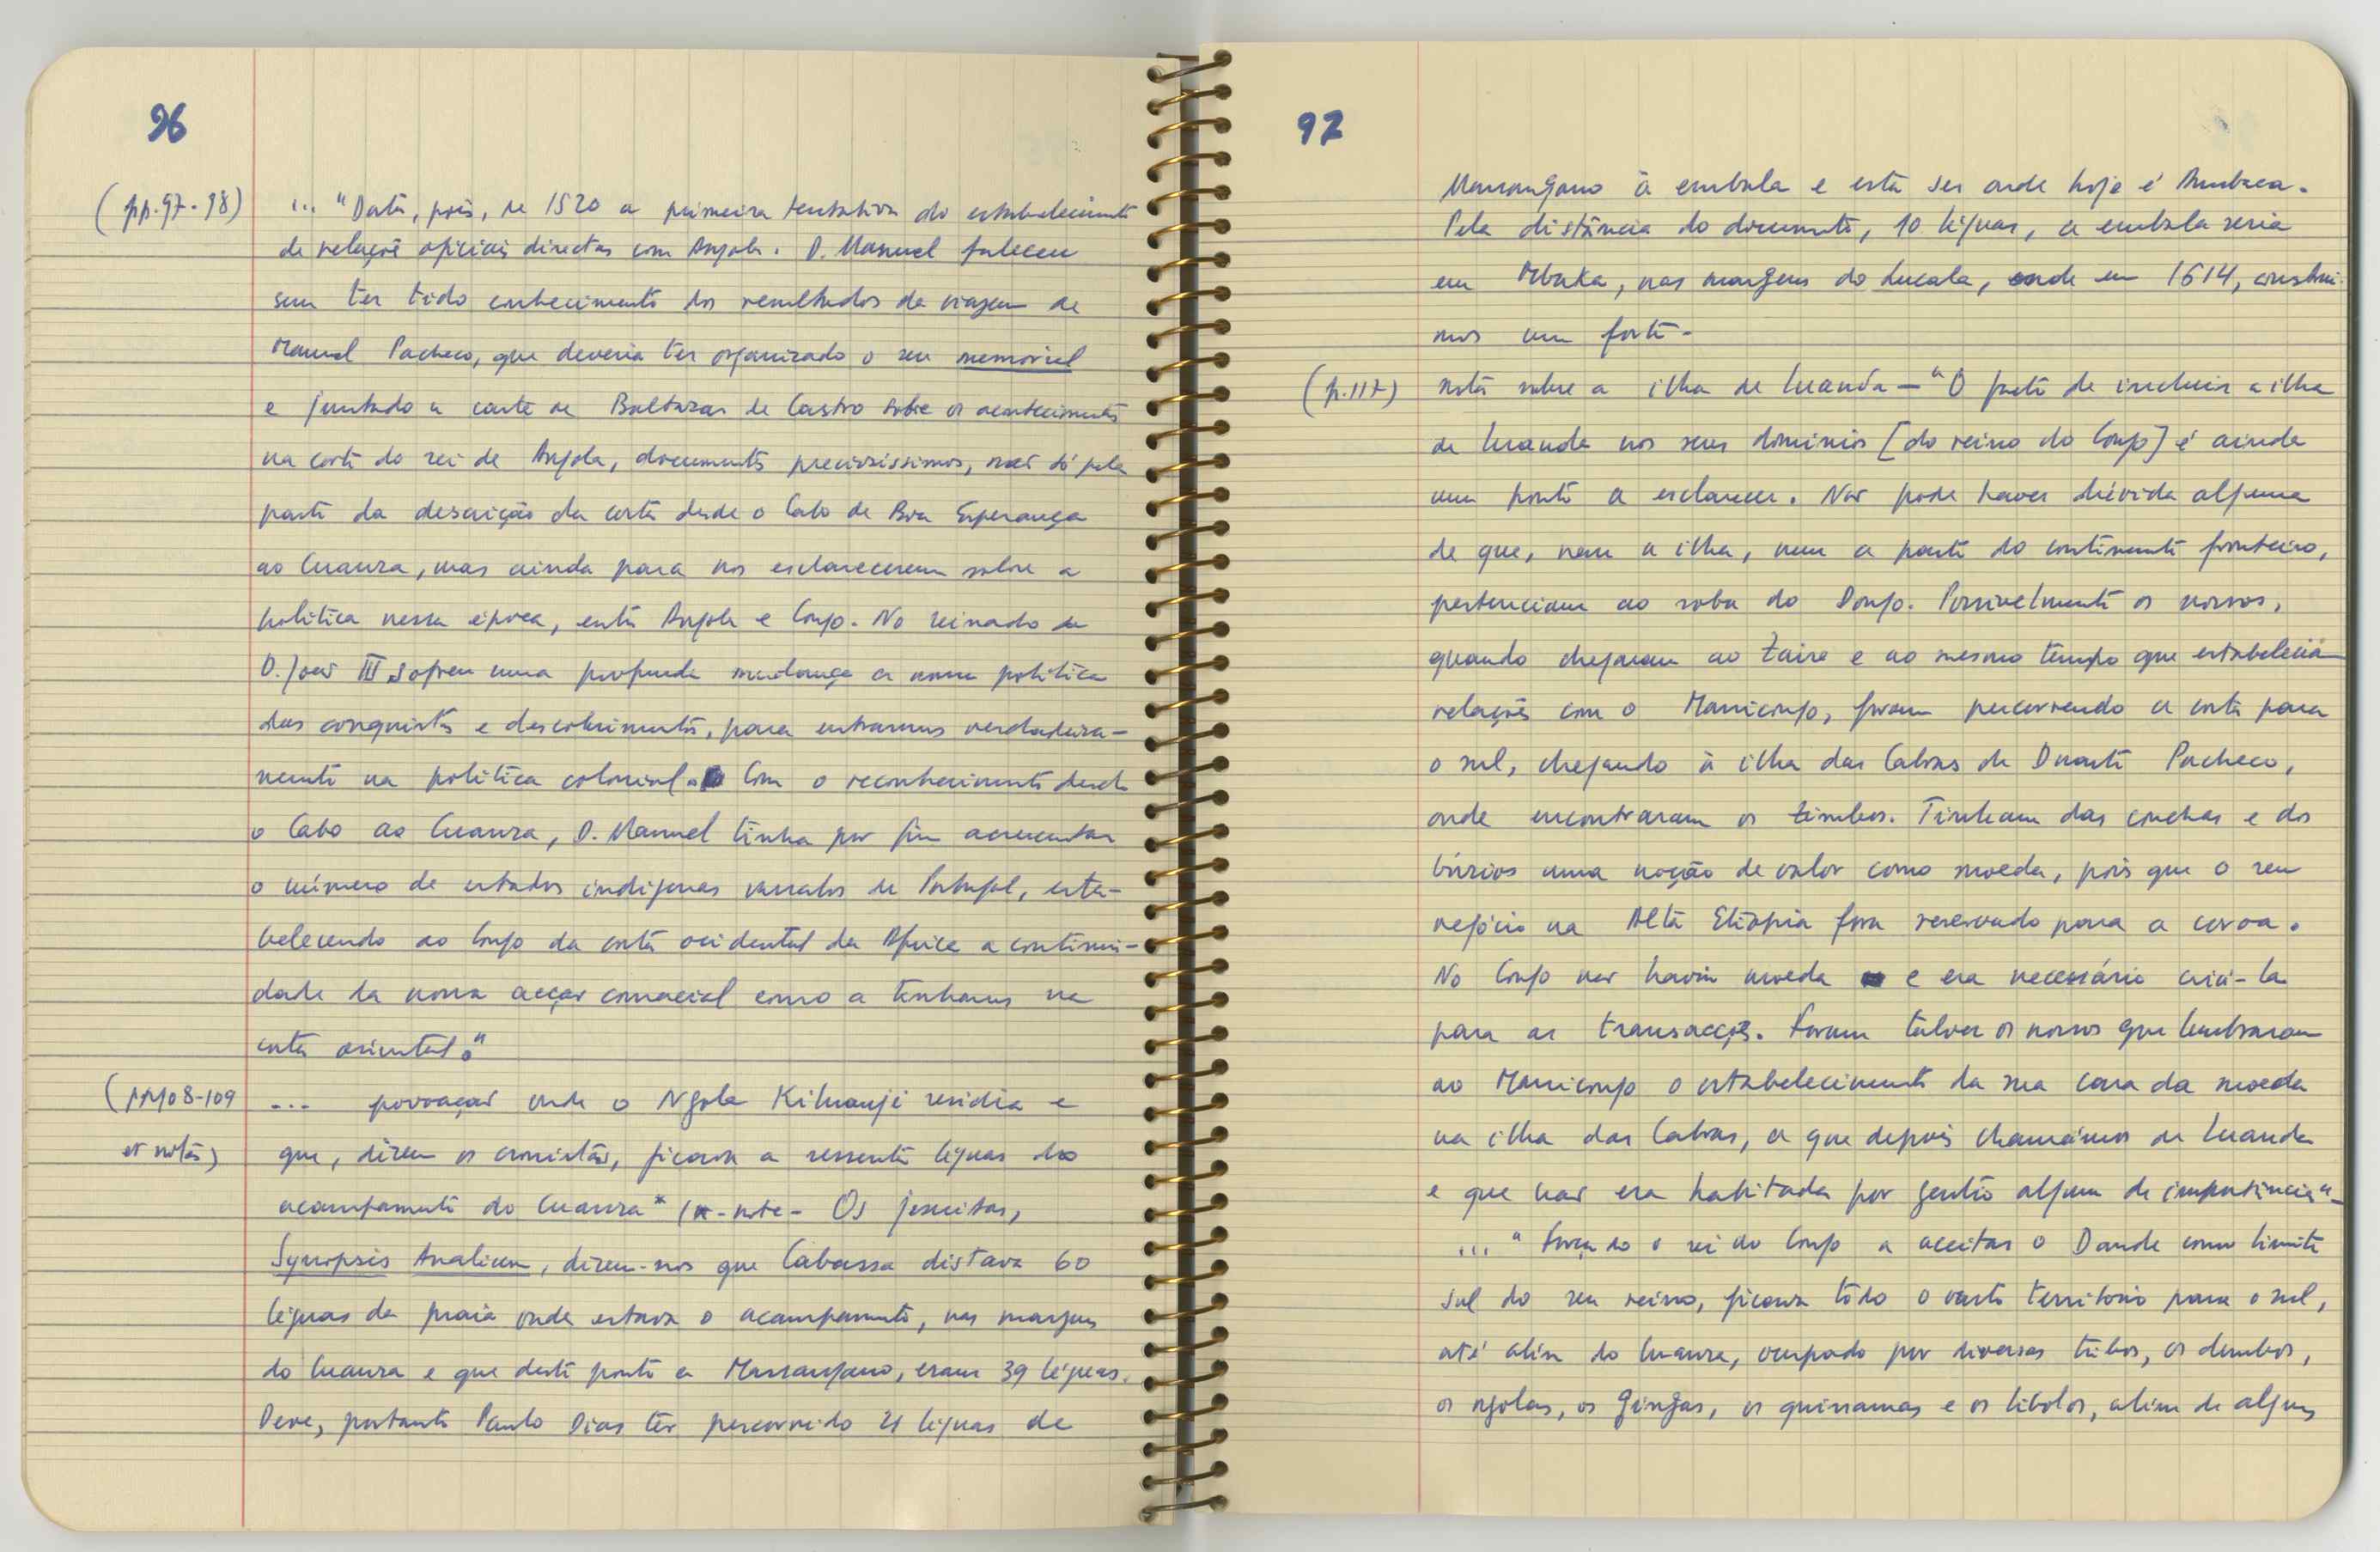 96
(pp. 97-98) ... "Data, pois, de 1520 a primeira tentativa do estabelecimento
de relações oficiais directas com Angola. D. Manuel faleceu
sem ter tido conhecimento dos resultados da viagem de
Manuel Pacheco, que deveria ter organizado o seu memorial
e juntado a carta de Baltazar de Castro sobre os acontecimentos
na corte do rei de Angola, documentos preciosíssimos, não só pela
parte da descrição da costa desde o Cabo de Boa Esperança
ao Cuanza, mas ainda para nos esclarecerem sobre a
política nessa época, entre Angola e Congo. No reinado de
D. João III sofreu uma profunda mudança a nossa política
das conquistas e descobrimentos, para entrarmos verdadeira-
mente na política colonial. Com o reconhecimento desde
o Cabo ao Cuanza, D. Manuel tinha por fim acrescentar
o número de estados indígenas vassalos de Portugal, esta-
belecendo ao longo da costa ocidental da Africa a continui-
dade da nossa acção comercial como a tinhamos na
costa oriental."
(pp. 108-109 ... povoação onde o Ngola Kiluanji residia e
et notas) que, dizem os cronistas, ficava a sessenta léguas do
acampamento do Cuanza* (*-nota- Os jesuitas,
Synopsis Analicum, dizem-nos que Cabassa distava 60
léguas da praia onde estava o acampamento, nas margens
do Cuanza e que deste ponto a Massangano, eram 39 léguas.
Deve, portanto Paulo Dias ter percorrido 21 léguas de
97
Massangano à embala e esta ser onde hoje é Ambaca.
Pela distância do documento, 10 léguas, a embala seria
em Mbaka, nas margens do Lucala, onde em 1614, construi-
mos um forte.
(p. 117) Nota sobre a ilha de Luanda — "O facto de incluir a ilha
de Luanda nos seus dominios [do reino do Congo] é ainda
um ponto a esclarecer. Não pode haver dúvida alguma
de que, nem a ilha, nem a parte do continente fronteiro,
pertenciam ao soba do Dongo. Possivelmente os nossos,
quando chegaram ao Zaire e ao mesmo tempo que estabeleciam
relações com o Manicongo, foram percorrendo a costa para
o sul, chegando à ilha das Cabras de Duarte Pacheco,
onde encontraram os zimbos. Tinham das conchas e dos
búzios uma noção de valor como moeda, pois que o seu
negócio na Alta Etiópia fora reservado para a coroa.
No Congo não havia moeda e era necessário criá-la
para as transacções. Foram talvez os nossos que lembraram
ao Manicongo o estabelecimento da sua casa da moeda
na ilha das Cabras, a que depois chamámos de Luanda
e que não era habitada por gentio algum de importância"-
... "Forçado o rei do Congo a aceitar o Dande como limite
sul do seu reino, ficava todo o vasto território para o sul,
até além do Cuanza, ocupado por diversas tribos, os dembos,
os ngolas, os Gingas, os quissamas e os libolos, além de alguns